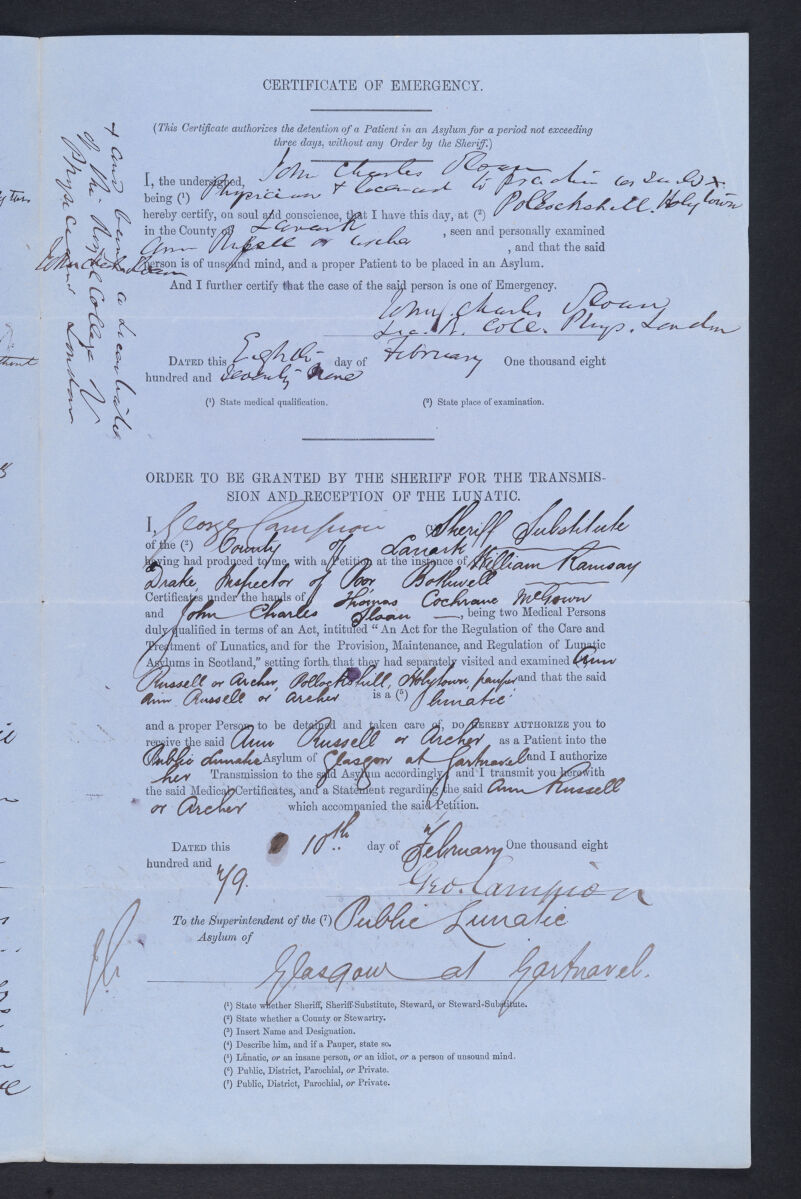 CERTIFICATE OF EMERGENCY.
(This Certificate authorizes the detention of a Patient in an Asylum for a period not exceeding
three days, without any Order by the Sheriff.)
I, the undersigned, John Charles Sloan
being (1) Physician & licensed to practise as such x
hereby certify, on soul and conscience, that I have this day, at (2) Pollockshill, Holytown
in the County of Lanark, seen and personally examined
Ann Russell or Archer, and that the said
person is of unsound mind, and a proper Patient to be placed in an Asylum.
And I further certify that the case of the said person is one of Emergency.
John Charles Sloan
Lic. R. Coll. Phys. London
DATED this Eighth day of February One thousand eight
hundred and seventy nine
(1) State medical qualification. (2) State place of examination.
x and being a Licentiate
of the Royal College of
Physicians London
John Charles Sloan
ORDER TO BE GRANTED BY THE SHERIFF FOR THE TRANSMIS-
SION AND RECEPTION OF THE LUNATIC.
I, George Campion Sheriff Substitute
of the (2) County of Lanark
having had produced to me, with a Petition at the instance of William Ramsay
Drake, Inspector of Poor Bothwell
Certificates under the hands of Thomas Cochrane McGown
and John Charles Sloan —, being two Medical Persons
duly qualified in terms of an Act, intituled "An Act for the Regulation of the Care and
Treatment of Lunatics, and for the Provision, Maintenance, and Regulation of Lunatic
Asylums in Scotland," setting forth that they had separately visited and examined Ann
Russell or Archer, Pollockshill, Holytown, pauper and that the said
Ann Russell or Archer is a (5) lunatic
and a proper Person to be detained and taken care of, DO HEREBY AUTHORIZE you to
receive the said Ann Russell or Archer as a Patient into the
Public Lunatic Asylum of Glasgow at Gartnavel and I authorize
her Transmission to the said Asylum accordingly; and I transmit you herewith
the said Medical Certificates, and a Statement regarding the said Ann Russell
or Archer which accompanied the said Petition.
DATED this 10th day of February One thousand eight
hundred and 79.
Geo. Campion
To the Superintendent of the (7) Public Lunatic
Asylum of
Glasgow at Gartnavel.
(1) State whether Sheriff, Sheriff-Substitute, Steward, or Steward-Substitute.
(2) State whether a County or Stewartry.
(3) Insert Name and Designation.
(4) Describe him, and if a Pauper, state so.
(5) Lunatic, or an insane person, or an idiot, or a person of unsound mind.
(6) Public, District, Parochial, or Private.
(7) Public, District, Parochial, or Private.